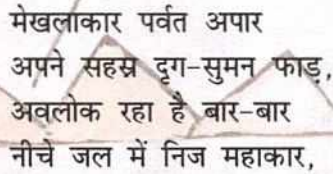 मेखलाकार पर्वत अपार
अपने सहस्र दृग-सुमन फाड़,
अवलोक रहा है बार-बार
नीचे जल में निज महाकार,